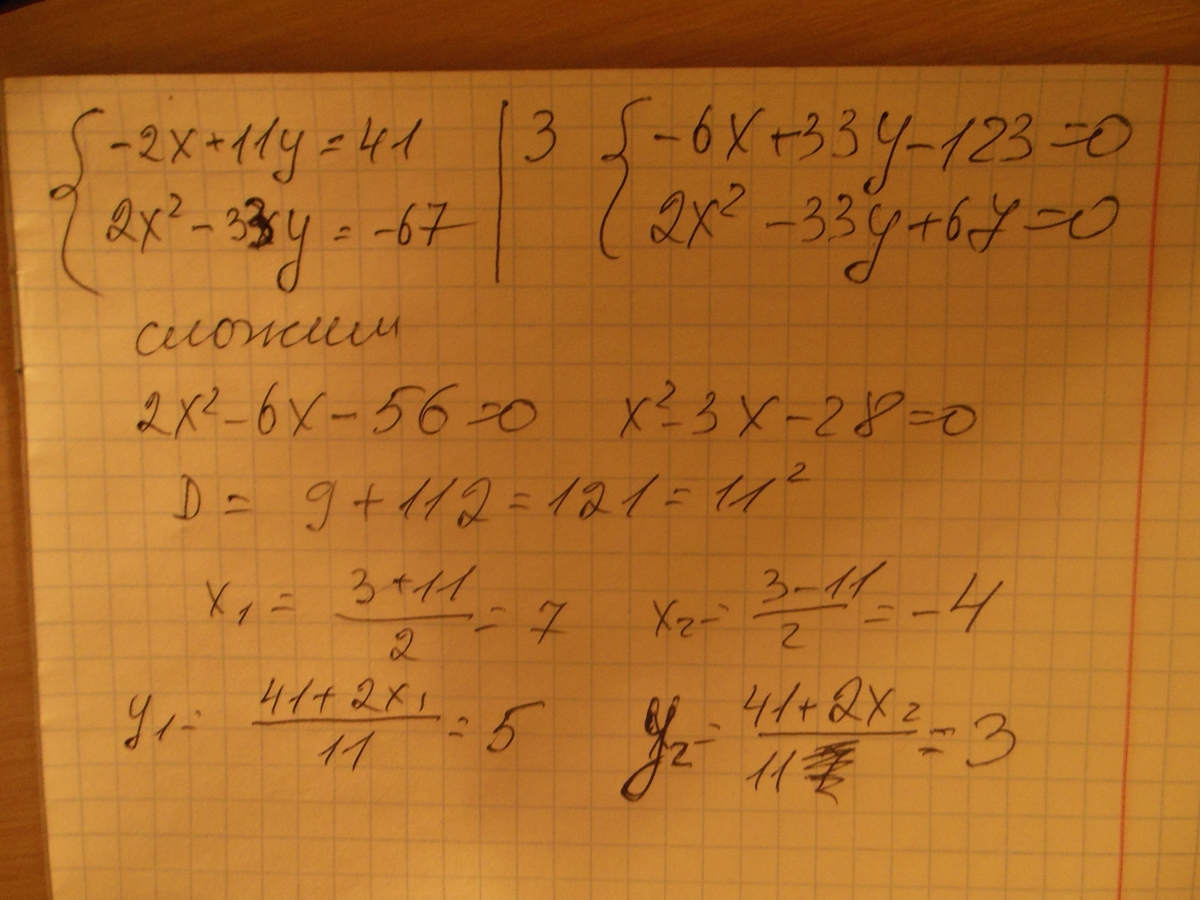 { -2x + 11y = 41 | 3 { -6x + 33y - 123 = 0
2x² - 33y = -67 2x² - 33y + 67 = 0
сложим
2x² - 6x - 56 = 0 x² - 3x - 28 = 0
D = 9 + 112 = 121 = 11²
x₁ = (3 + 11)/2 = 7 x₂ = (3 - 11)/2 = -4
y₁ = (41 + 2x₁)/11 = 5 y₂ = (41 + 2x₂)/11 = 3